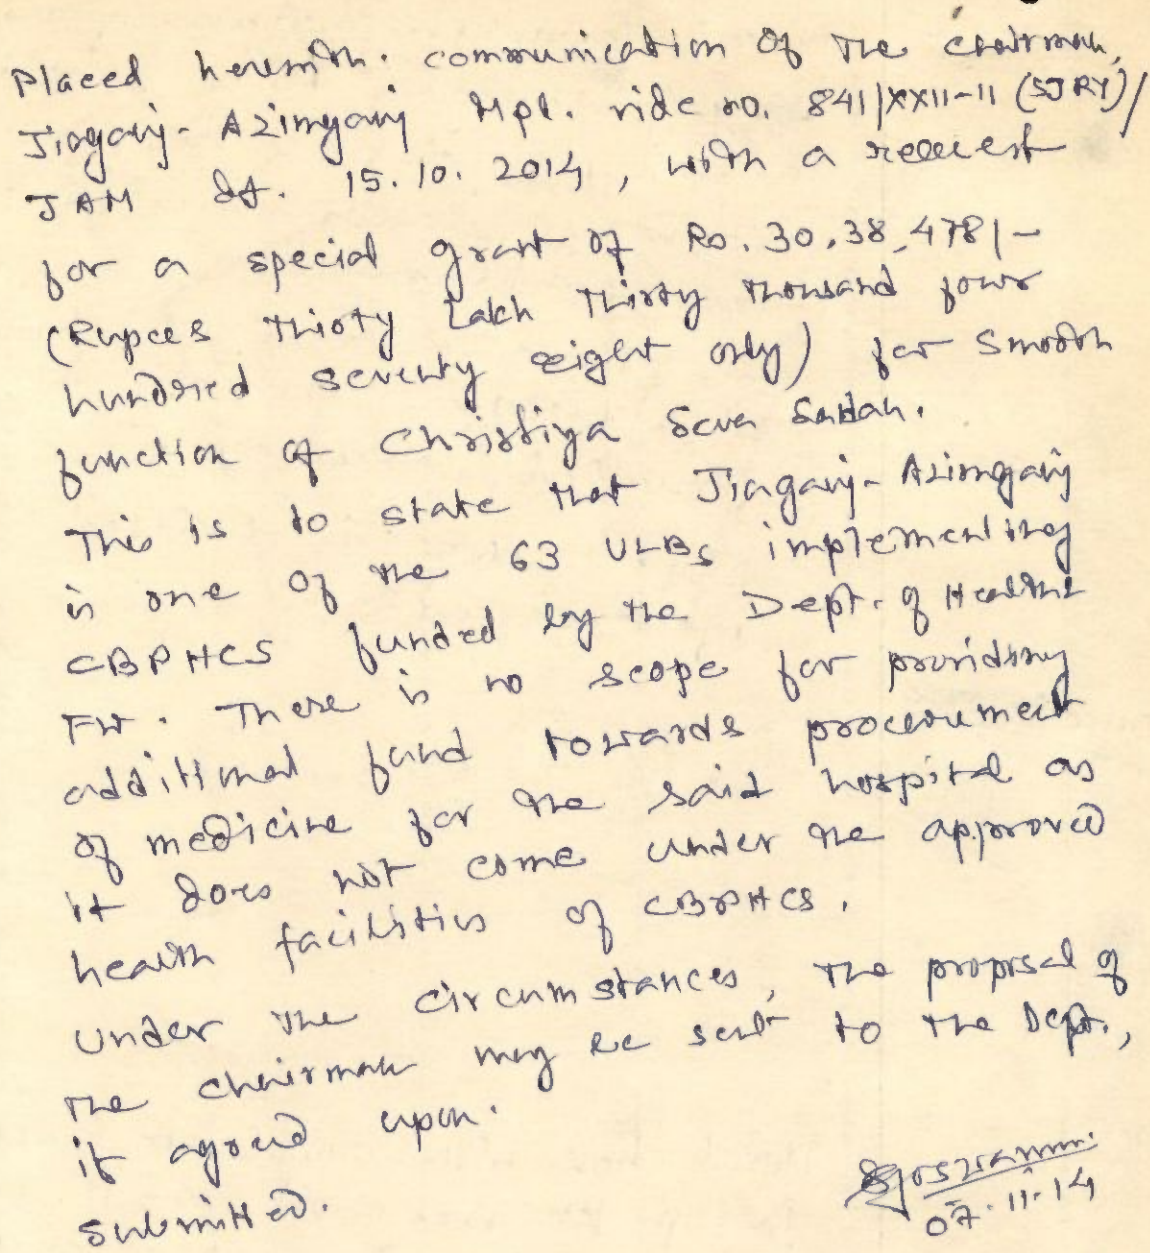 Placed herewith. communication of the Chairman,
Jiaganj-Azimganj Mpl. vide no. 841/XXII-11 (SJRY)/
JAM dt. 15.10.2014, with a request
for a special grant of Rs. 30,38,478/-
(Rupees Thirty Lakh Thirty thousand four
hundred seventy eight only) for smooth
function of Christiya Seva Sadan.
This is to state that Jiaganj-Azimganj
is one of the 63 ULBs implementing
CBPHCS funded by the Dept. of Health &
FW. There is no scope for providing
additional fund towards procurement
of medicine for the said hospital as
it does not come under the approved
health facilities of CBPHCS.
Under the circumstances, the proposal of
the chairman may be sent to the Dept.,
if agreed upon.
Submitted.
Goswami
07.11.14